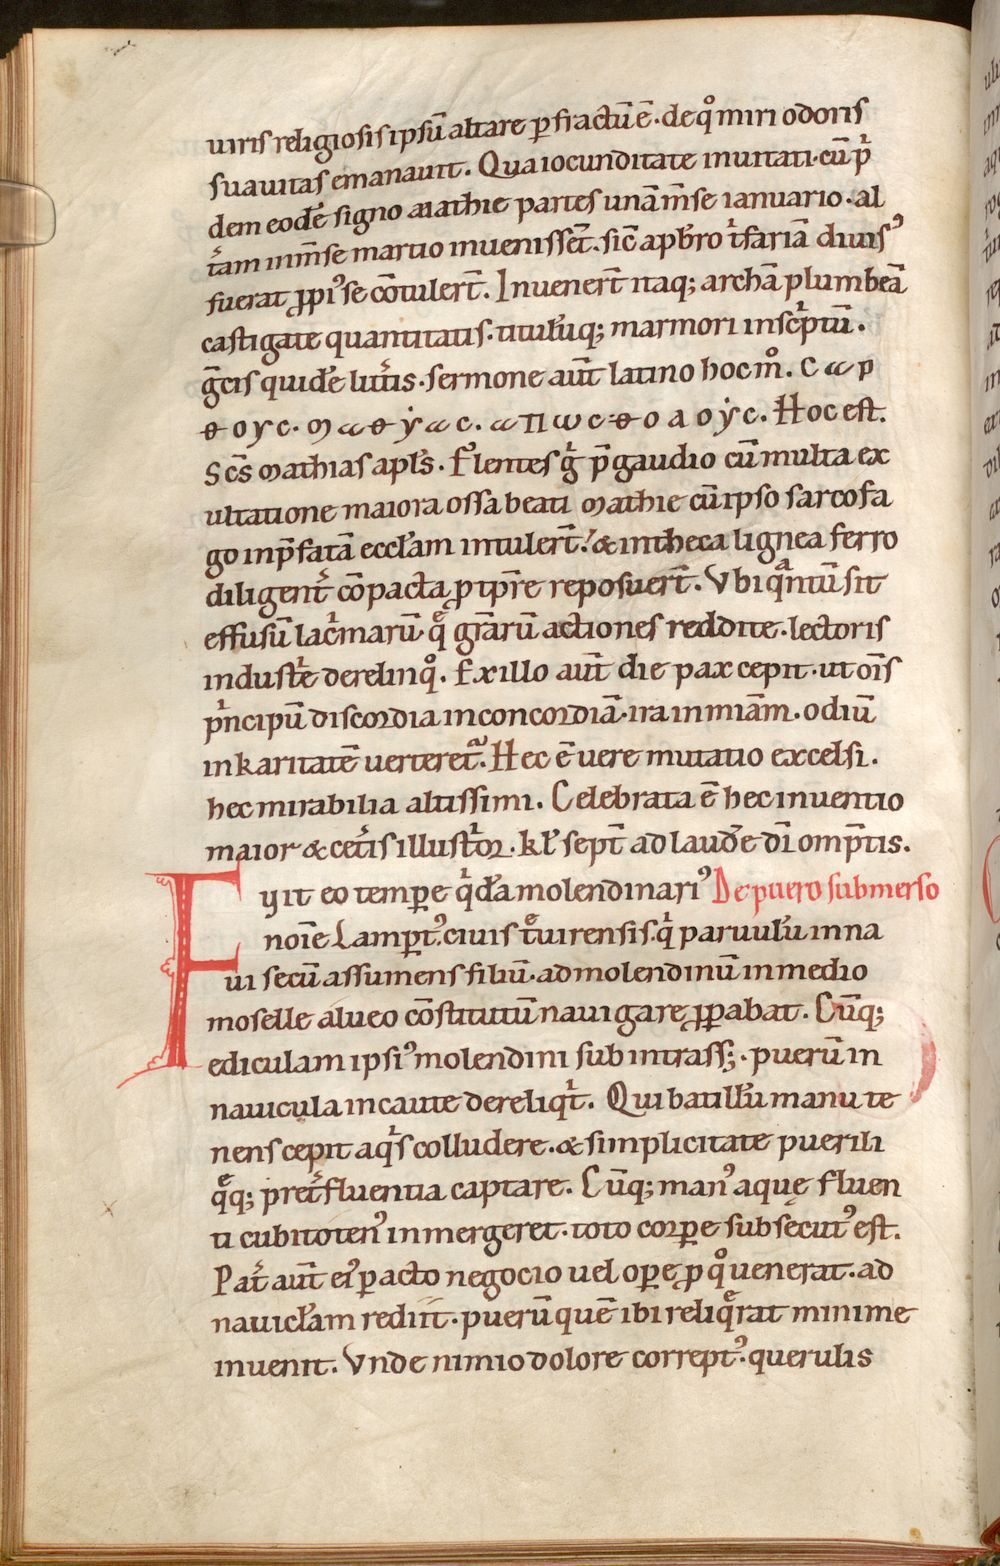 uiris religiosis ipsū altare ꝑfractū ē. de qͦ miri odoris
suauitas emanauit. Qua iocunditate inuitati. cū pͥ
dem eodē signo Mathie partes unā m̄se ianuario. al
t̾am in m̄se martio inuenissēt. sic̄ ap̄bro tͥfariā diuisꝰ
fuerat ꝓpiꝰ se cōtulert̄. Inuenert̄ itaq; archā plumbeā
castigate quantitatis. titulūq; marmori insc̄ptū.
g̃cis quidē litt̾is. sermone aut̄ latino hoc m̊. C ω ρ
θ ο υ c. m ω θ ẏ ω c. ω π ω c θ ο λ ο ẏ c. Hoc est.
Scs̄ Mathias apl̄s. Flentes gͥ p̄ gaudio cū multa ex
ultatione maiora ossa beati Mathie cū ipso sarcofa
go in p̄fatā eccl̄am intulert̄. & in theca lignea ferro
diligent̾ cōpacta ꝓ tp̄re reposuert̄. Vbi qͣntū sit
effusū lacͥmarū. qͤ grā̄rū actiones reddite. lectoris
industͥe derelinqͦ. Ex illo aut̄ die pax cepit. ut oīs
pͥncipū discordia in concordiā. ira in miā̄m. odiū
in karitatē uerteret᷑. Hec ē uere mutatio excelsi.
hec mirabilia altissimi. Celebrata ē hec inuentio
maior & cet̾is illustͥor. kl̄ sept̄ ad laudē dī omp̄tis.
Fuit eo tempere qͥdā molendinariꝰ De puero submerso
noīe Lamꝑtꝰ. ciuis tͤuirensis. qͥ paruulū in na
ui secū assumens filiū. ad molendinū in medio
moselle alueo cōstitutū nauigare ꝓꝑabat. Cūq;
ediculam ipsiꝰ molendini subintrass;. puerū in
nauicula incaute dereliqͥt. Qui batillū manu te
nens cepit aqͥs colludere. & simplicitate puerili
qͤq; pret̾fluentia captare. Cūq; manꝰ aquę fluen
ti cubitotenꝰ inmergeret. toto corꝑe subsecutꝰ est.
Pat̾ aut̄ eiꝰ ꝑacto negocio uel oꝑe ꝓ qͦ uenerat. ad
nauicl̄am rediit. puerū quē ibi reliqͤrat minime
inuenit. Vnde nimio dolore correptꝰ. querulis